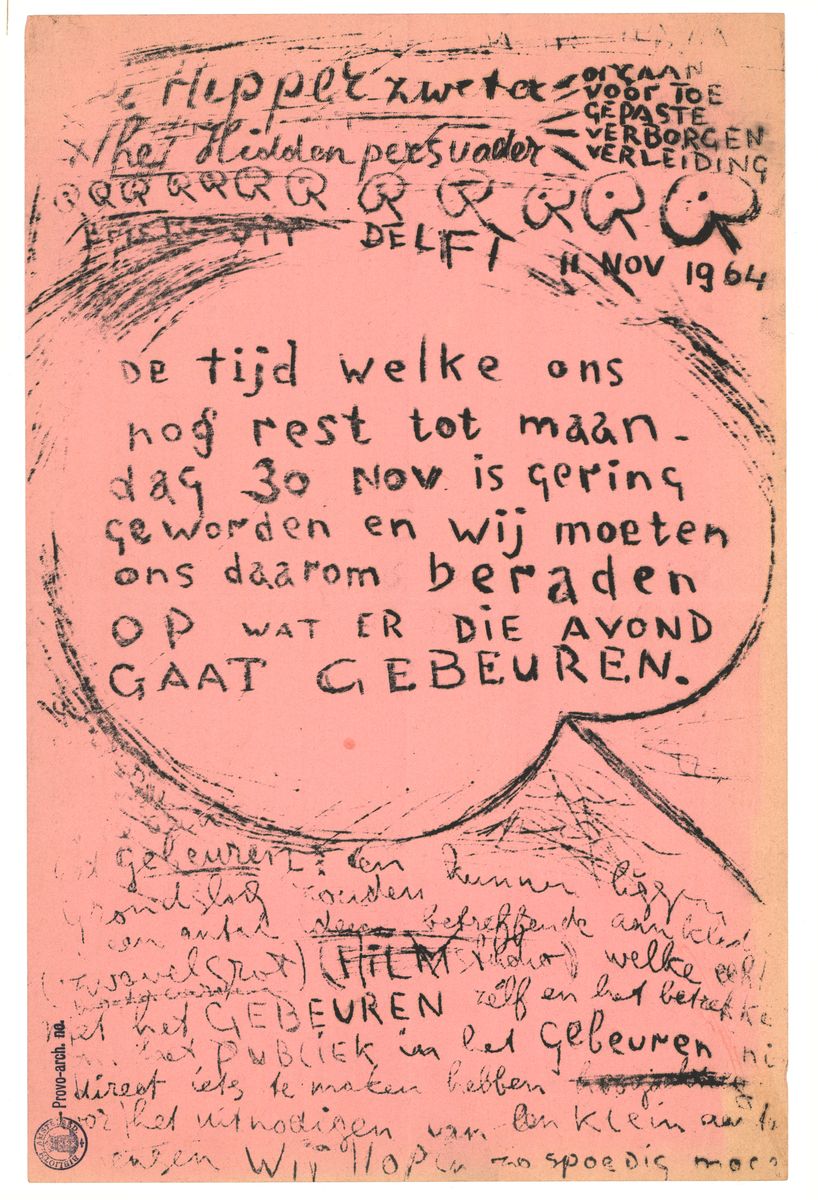 Hipper zweter
ORGAAN
VOOR TOE
GEPASTE
VERBORGEN
VERLEIDING
het Hidden persuader
UIT DELFT
11 NOV 1964
DE tijd welke ons
nog rest tot maan-
dag 30 NOV is gering
geworden en wij moeten
ons daarom beraden
OP WAT ER DIE AVOND
GAAT GEBEUREN.
gebeuren: en kunnen liggen
grondslag zouden
een aantal ideen betreffende
(zwavelgrot) (FiLM studio) welke
het GEBEUREN zelf en het betrekke
het PUBLIEK in het gebeuren ni
direct iets te maken hebben
voor het uitnodigen van een klein
WIJ HOPEN zo spoedig
Provo-arch. no.